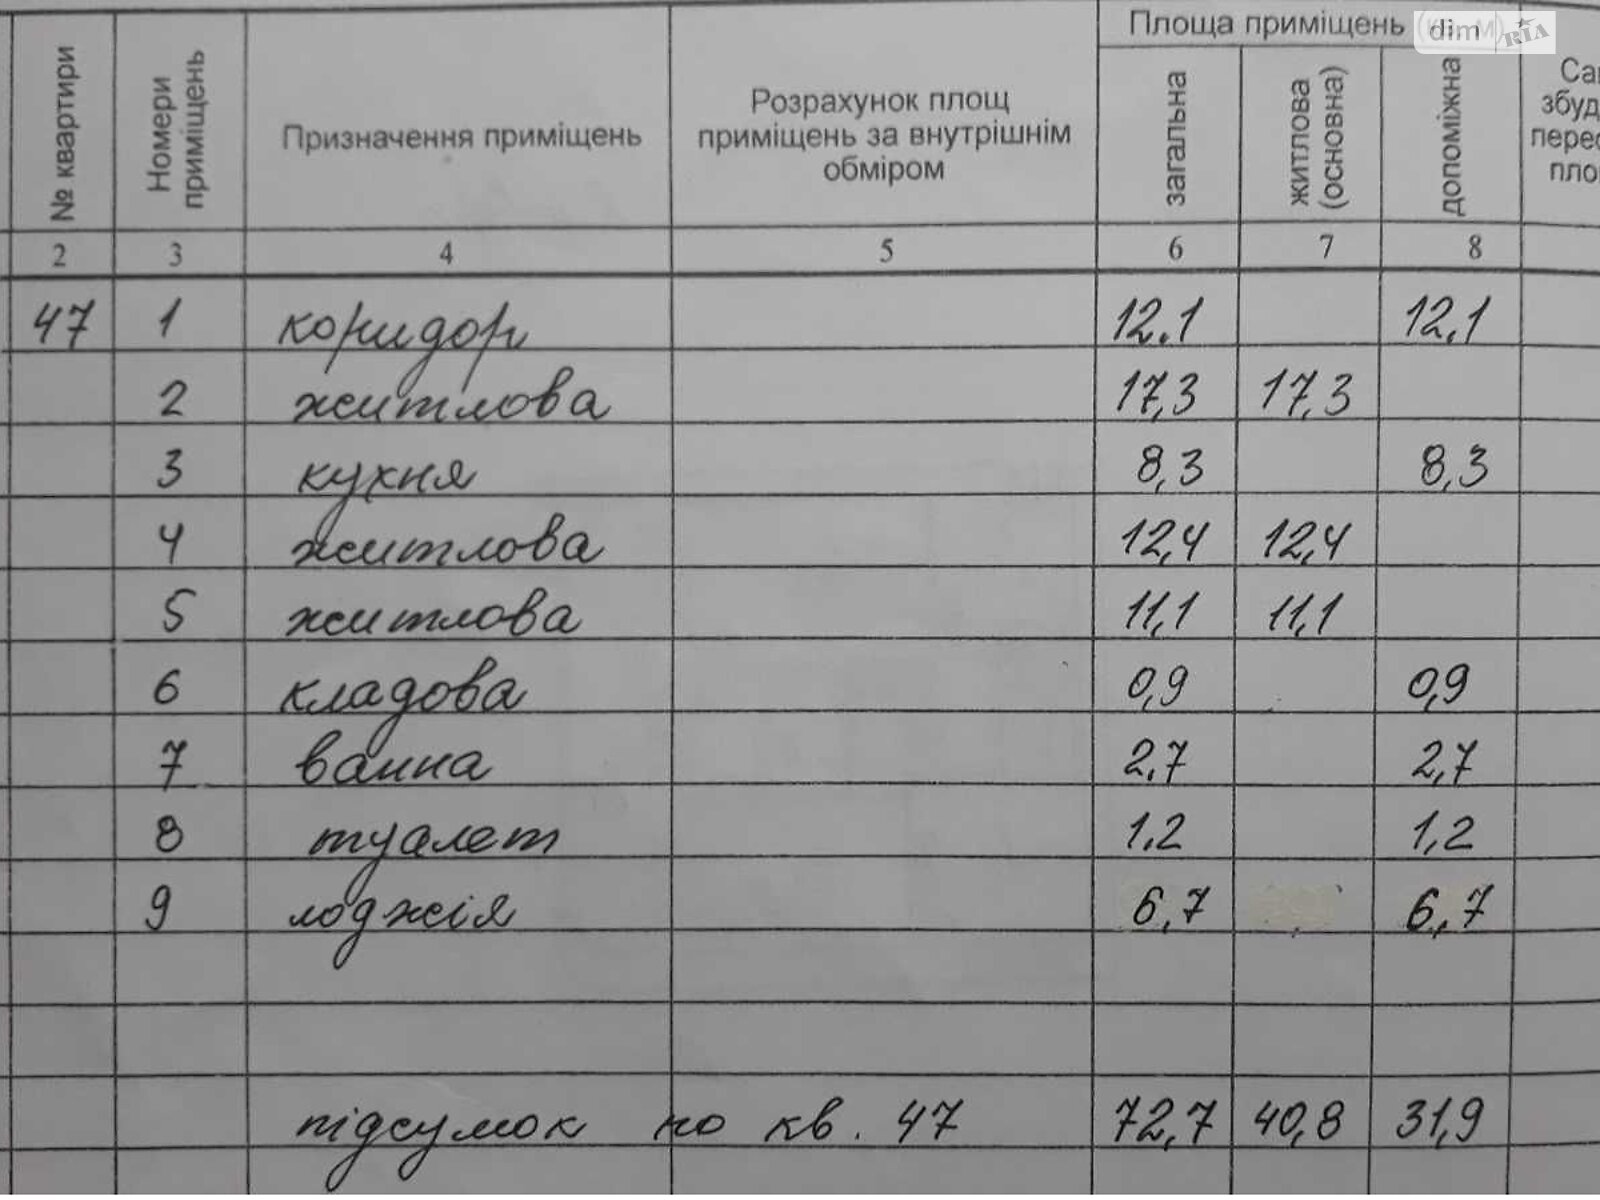 Площа приміщень
dim RIA
№ квартири
Номери приміщень
Призначення приміщень
Розрахунок площ
приміщень за внутрішнім
обміром
загальна
житлова (основна)
допоміжна
2 3 4 5 6 7 8
47 1 коридор 12.1 12,1
2 житлова 17,3 17,3
3 кухня 8,3 8,3
4 житлова 12,4 12,4
5 житлова 11,1 11,1
6 кладова 0,9 0,9
7 ванна 2,7 2,7
8 туалет 1.2 1,2
9 лоджія 6,7 6,7
підсумок по кв. 47 72,7 40,8 31,9